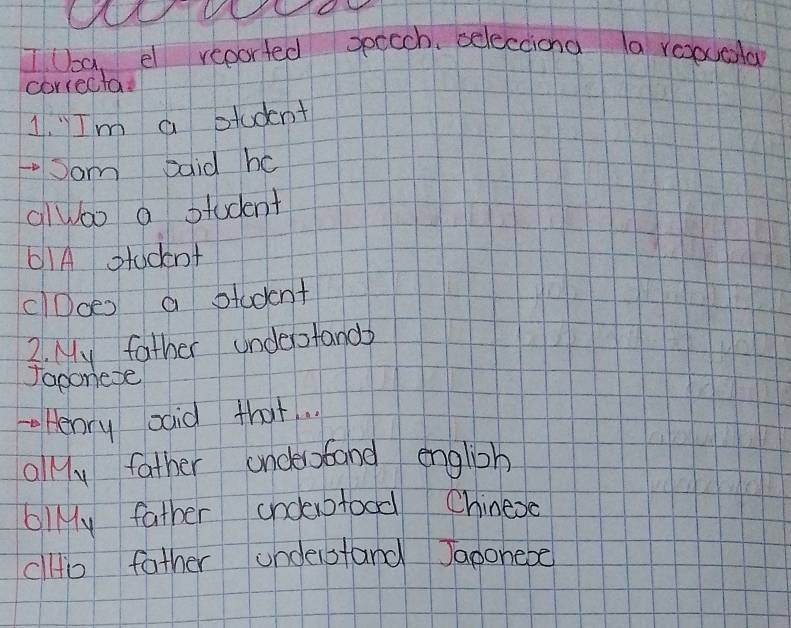 I. Usa el reported speech. selecciona la respuesta
correcta.
1. "Im a student
→ Sam said he
a) Was a student
b) A student
c) Does a student
2. My father understands
Japonese
→ Henry said that...
a) My father understand english
b) My father understood Chinese
c) His father understand Japonese